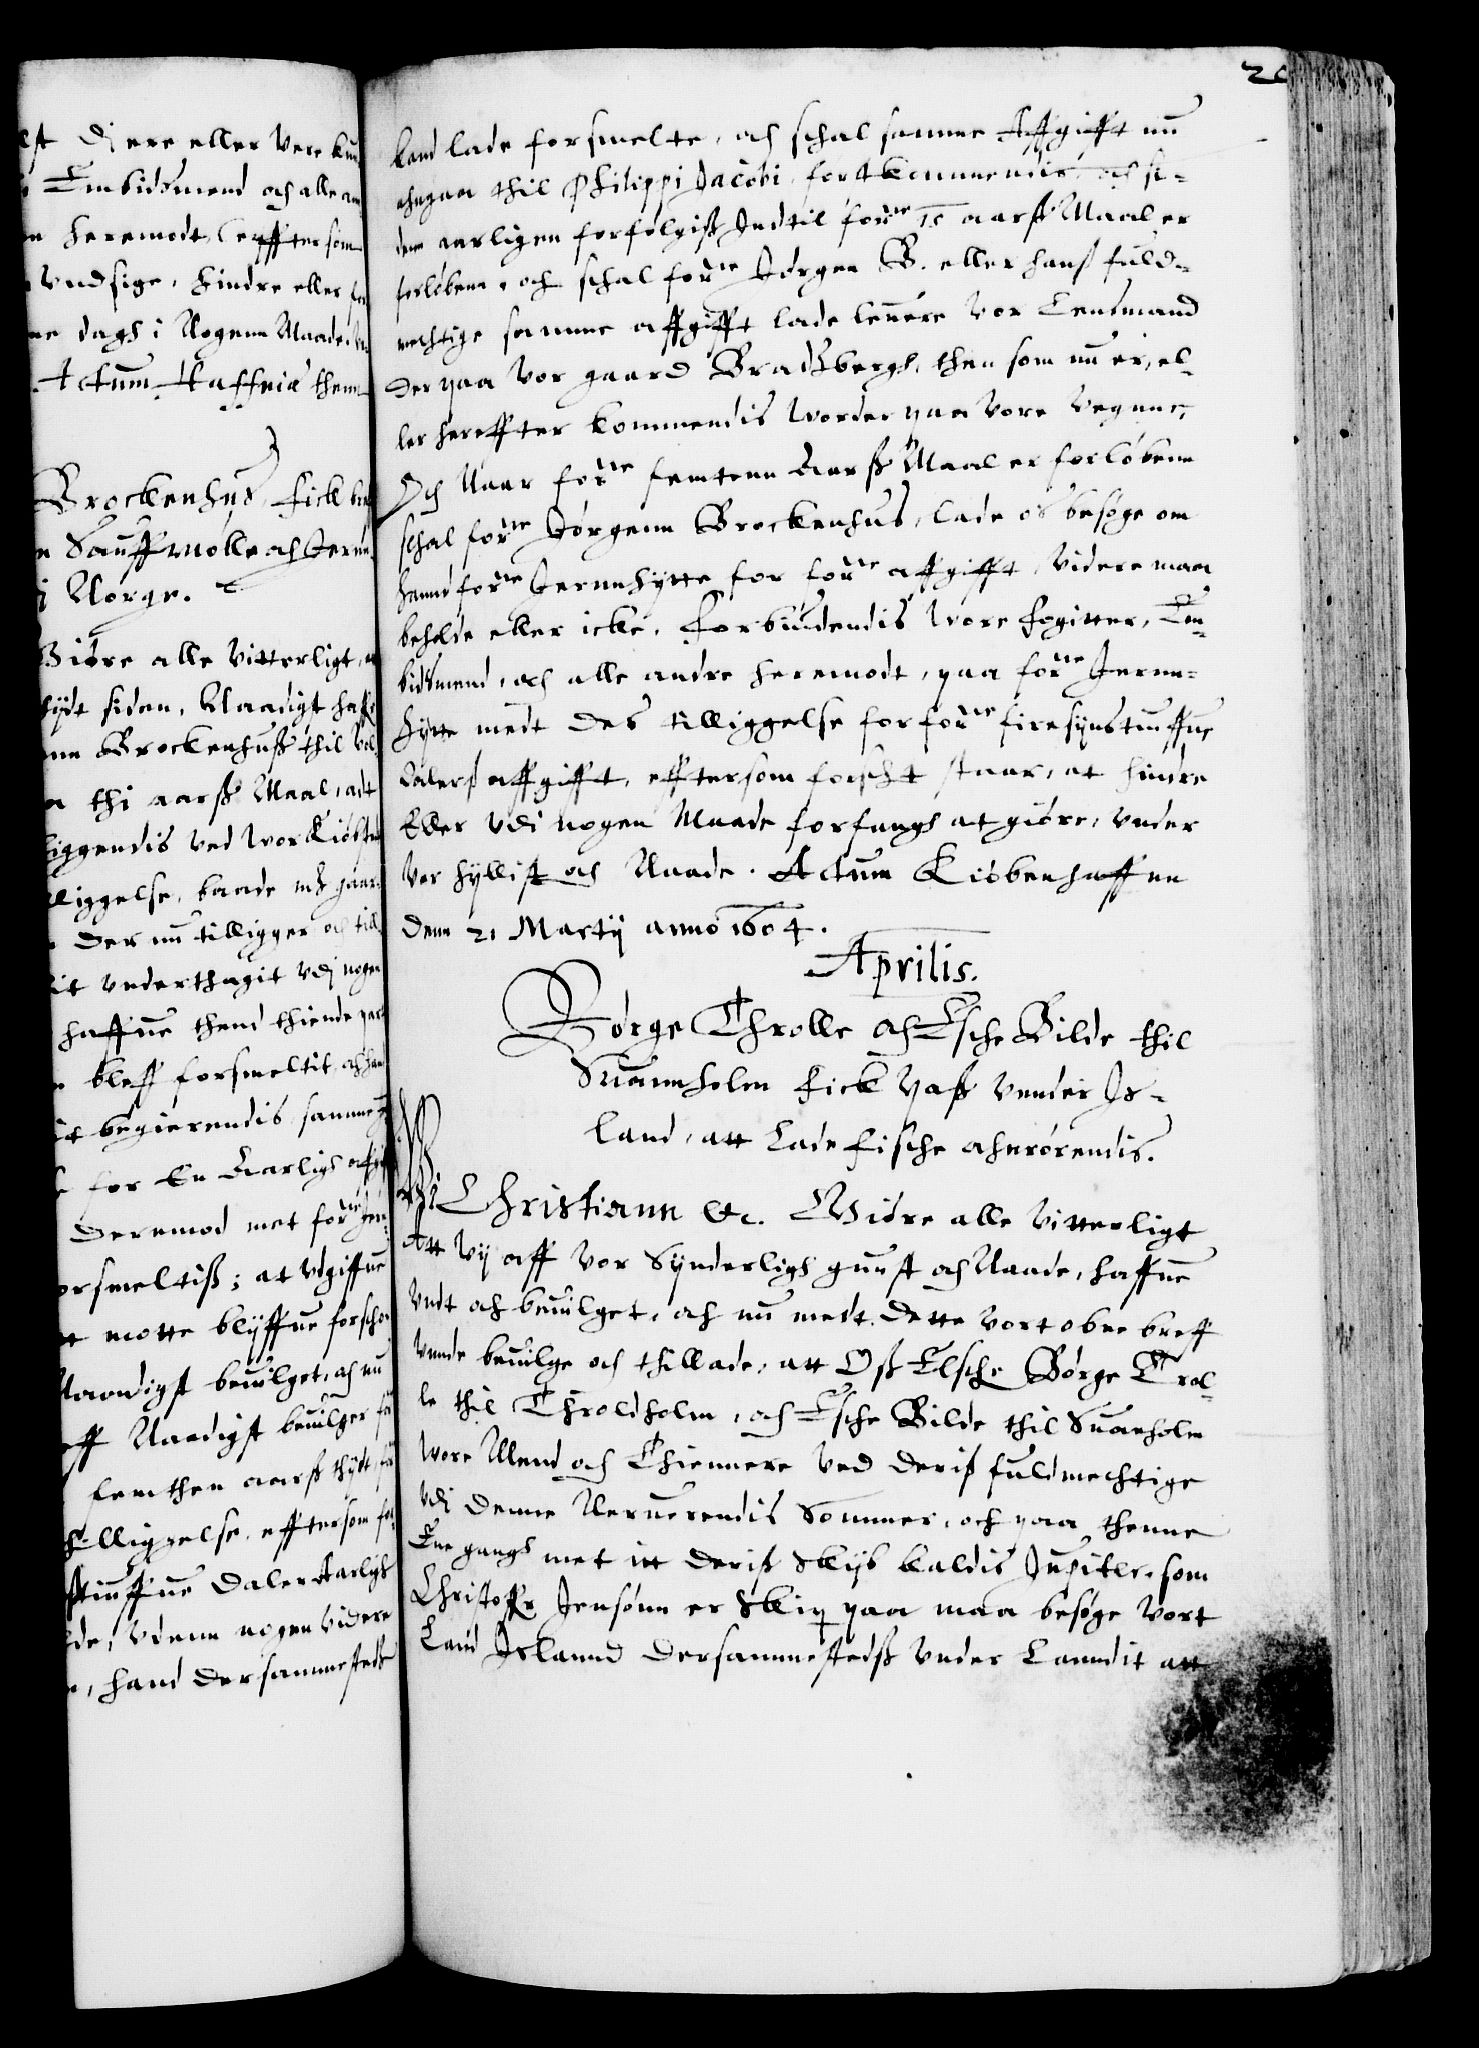 lst di ere eller vere kun
Embidsmend och alle an
n heremodt, eefftersom
vndsige, hindre eller for
ne dags i Nogenn Maade.
Actum Haffniæ them
Brockenhus fick
n Sauffmølle och Jernn
i Norge.
Giøre alle vitterligt, at
thydt siden, Naadigst haffe
nn Brockenhuss thil
n thi aarss Maal, adt
liggendis ved wor Kiøbste
lliggelse, baade
der nu tilligger och till
it vnderthagit vdj nogen
haffue thend thiende part
bleff forsmeltit, och han
it begierendis samme
for En Aarligh affgi
Deremod met forne Jern
orsmeltiss; at vdgiffue
motte blyffue forscho
Naadigst beuilget, och nu
eff Naadigst beuilger
femthen aarss thydt
thilliggelse, efftersom
stiuffue Daler Aarligh
de, vdenn nogen videre
, hand dersammestedss
20
land lade forsmelte, och schal samme Affgifft nu
ahngaa thil Philippi Jacobi, førstkommendis, och si-
den aarligen forfølgiss Indtil forne 15 aarss Maal er
forløbenn, och schal forne Jørgen B. eller hans fuld-
mechtige samme affgifft lade leuere vor Lensmand
der paa vor gaard Bratzbergh, then som nu er, el-
ler hereffter kommendis worder paa vore vegnne,
Och Naar forne femtenn Aarss Maal er forløbenn
schal forne Jørgenn Brockenhus, lade os besøge om
hannd forne Jernnhytte for forne affgifft, videre maa
beholde eller icke. Forbiudendis wore fogitter, Em-
bidsmend, och alle andre heremodt, paa forne Jernn-
hytte medt des tilliggelse for forne firesynstiuffue
Dalers affgifft, efftersom forscht staar, at hindre
Eller vdi nogen Maade forfangh at giøre, vnder
vor hyllist och Naade. Actum Kiøbenhaffnn
denn 21 Martij anno 1604.
Aprilis.
Børge Throlle och Esche Bilde thil
Suannholm fick pass vnnder Is-
land, att lade fische ahnrørendis.
Wi Christiann etc. Giøre alle vitterligt
Att vij aff vor synderligh gunst och Naade, haffue
vndt och beuilget, och nu medt dette vort obne breff
vnnde beuilge och thillade, att Oss Elschel Børge Trol-
le thil Throldholm, och Esche Bilde thil Suanholm
wore Mend och Thiennere ved deris fuldmechtige
vdj denne Neruerendis Sommer, och paa thenne
Ene gangh met itt deris skyb kaldis Jupiter, som
Christoffr Jensønn er skip paa maa besøge vort
Land Islannd dersammestedss vnder Lanndit att